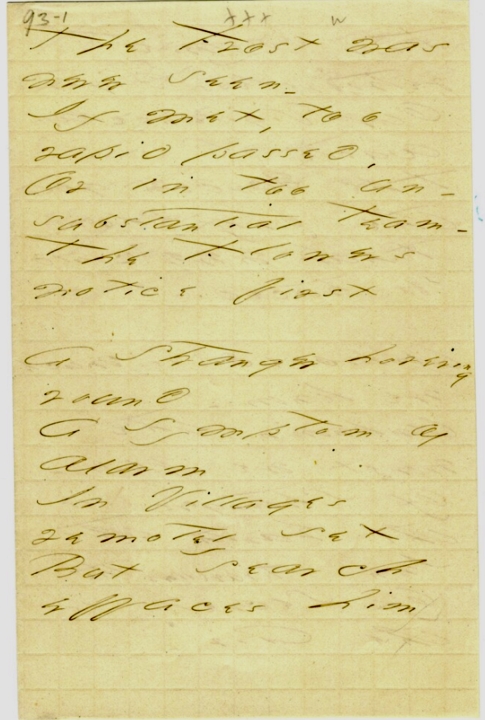 93-1 xxx w
The Frost was
never seen -
If met, too
rapid passed,
Or in too un-
substantial Team -
The Flowers
notice first

A Stranger hovering
round
A Symptom of
alarm
In Villages
remotely set
But search
effaces him